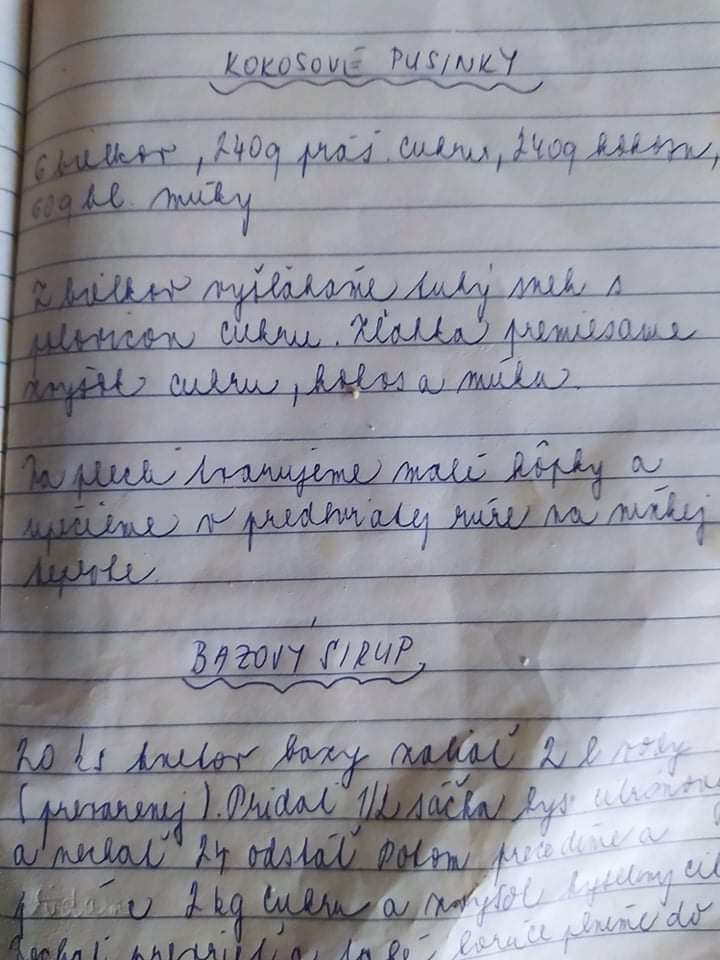 KOKOSOVÉ PUSINKY
6 bielkov, 240g práš. cukru, 240g kokosu,
60g hl. múky
Z bielkov vyšľaháme tuhý sneh s
polovicou cukru. Zľahka premiešame
zvyšok cukru, kokos a múku.
Na plech tvarujeme malé kôpky a
upečieme v predhriatej rúre na nízkej
teplote.
BAZOVÝ SIRUP
20 ks kvetov bazy zaliať 2 l vody
(prevarenej). Pridať 1/2 sáčka kys. citrónov
a nechať 24 odstáť Potom precedíme a
2 kg cukru a zvyšok kyseliny cit
horúce plníme do